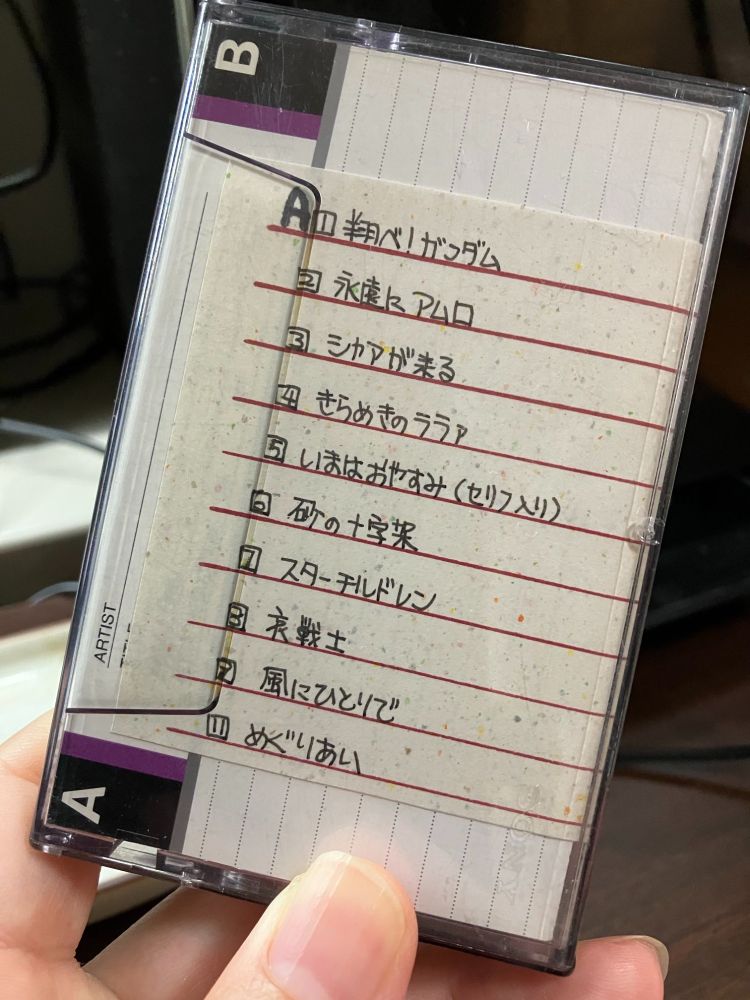 B
A ① 翔べ！ガンダム
② 永遠にアムロ
③ シャアが来る
④ きらめきのララァ
⑤ いまはおやすみ（セリフ入り）
⑥ 砂の十字架
⑦ スターチルドレン
⑧ 哀戦士
⑨ 風にひとりで
⑩ めぐりあい
ARTIST
A
SONY